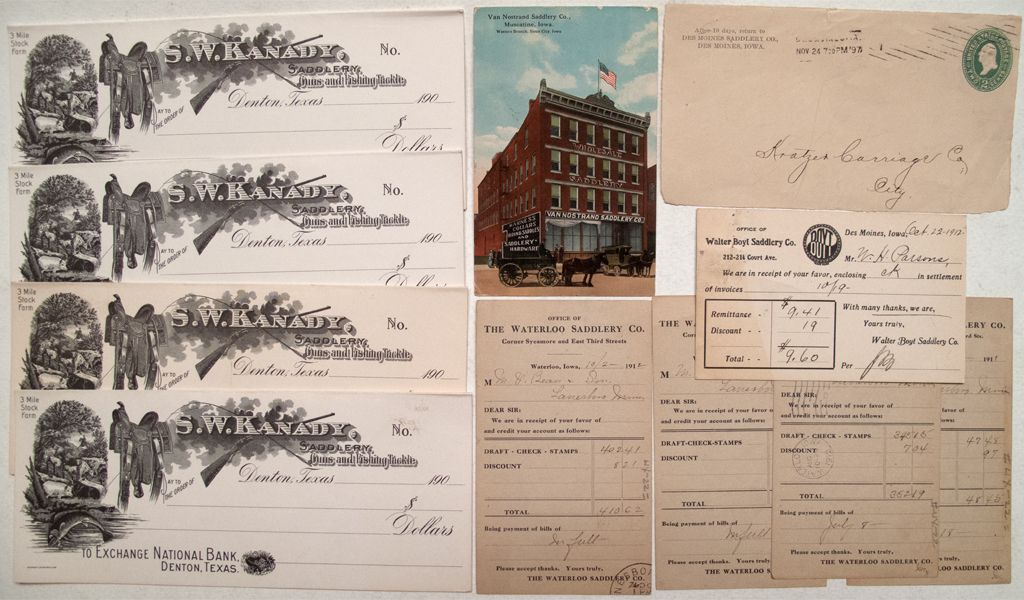 3 Mile
Stock
Farm
S.W. KANADY,
No.
SADDLERY,
Guns, and Fishing Tackle.
Denton, Texas 190
PAY TO
THE ORDER OF
$
Dollars
3 Mile
Stock
Farm
S.W. KANADY,
No.
SADDLERY,
Guns, and Fishing Tackle.
Denton, Texas 190
PAY TO
THE ORDER OF
3 Mile
Stock
Farm
S.W. KANADY,
No.
SADDLERY,
Guns, and Fishing Tackle.
Denton, Texas 190
PAY TO
THE ORDER OF
3 Mile
Stock
Farm
S.W. KANADY,
No.
SADDLERY,
Guns, and Fishing Tackle.
Denton, Texas 190
AY TO
THE ORDER OF
$
Dollars
TO EXCHANGE NATIONAL BANK,
DENTON, TEXAS.
Van Nostrand Saddlery Co.,
Muscatine, Iowa.
Western Branch, Sioux City, Iowa
WHOLESALE
SADDLERY
VAN NOSTRAND SADDLERY CO.
HARNESS
COLLARS
SADDLERY
HARDWARE
After 10 days, return to
DES MOINES SADDLERY CO.,
DES MOINES, IOWA.
NOV 24 7:30PM '97
Kratzer Carriage Co
City
OFFICE OF
Walter Boyt Saddlery Co.
212-214 Court Ave.
BOYT
Des Moines, Iowa, Oct 22-1912
Mr. W. H. Parsons,
We are in receipt of your favor, enclosing ck in settlement
of invoices 10/9-
Remittance - $9.41
Discount - - 19
Total - - $9.60
With many thanks, we are,
Yours truly,
Walter Boyt Saddlery Co.
Per
OFFICE OF
THE WATERLOO SADDLERY CO.
Corner Sycamore and East Third Streets
Waterloo, Iowa, 10/2- 191
M
Lanesboro
DEAR SIR:
We are in receipt of your favor of
and credit your account as follows:
DRAFT - CHECK - STAMPS 40241
DISCOUNT 821
TOTAL 41062
Being payment of bills of
In full
Please accept thanks. Yours truly,
THE WATERLOO SADDLERY CO.
THE W
Cor
M
Lanesbor
DEAR SIR:
We are in receipt of your favor o
and credit your account as follows:
DRAFT-CHECK-STAMPS
DISCOUNT
TOTAL
Being payment of bills of
In full
Please accept thanks. You
THE WATERLOO S
DEAR SIR:
We are in receipt of your favor of
and credit your account as follows:
DRAFT - CHECK - STAMPS
DISCOUNT 704
TOTAL 35219
Being payment of bills of
July 8
Please accept thanks. Yours truly,
THE WATERLOO SADDLERY CO.
RY CO.
191
4748
97
4845